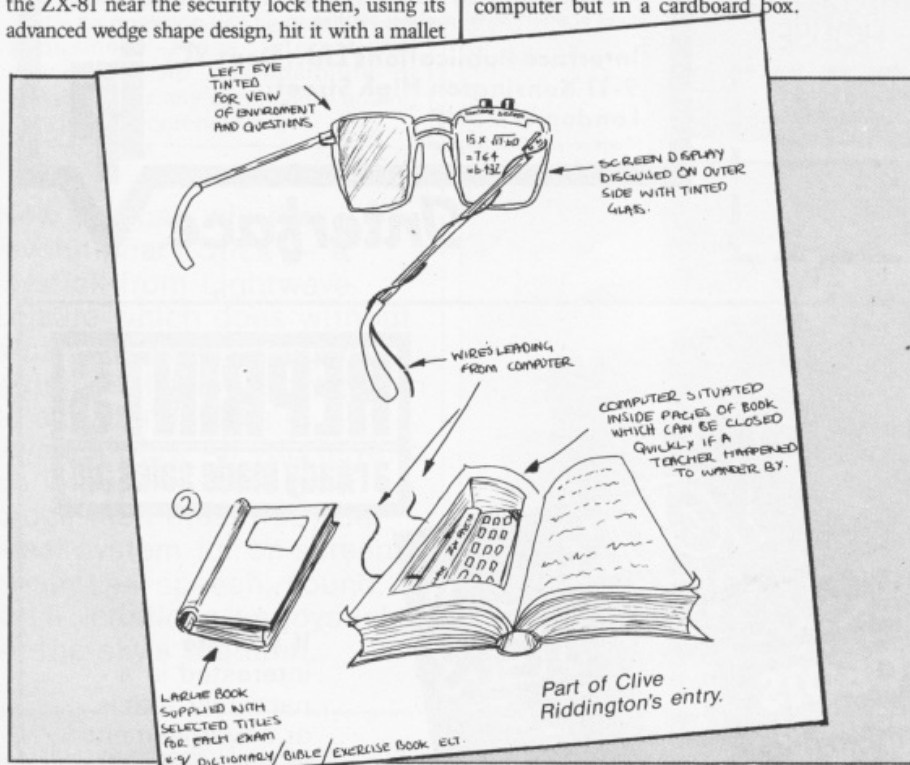 the ZX-81 near the security lock then, using its
advanced wedge shape design, hit it with a mallet
computer but in a cardboard box.
LEFT EYE
TINTED
FOR VEIW
OF ENVIROMENT
AND QUESTIONS
15 X
= 764
SCREEN DISPLAY
DISGUISED ON OUTER
SIDE WITH TINTED
GLASS.
WIRES LEADING
FROM COMPUTER
COMPUTER SITUATED
INSIDE PAGES OF BOOK
WHICH CAN BE CLOSED
QUICKLY IF A
TEACHER HAPPENED
TO WANDER BY.
2
LARGE BOOK
SUPPLIED WITH
SELECTED TITLES
FOR EACH EXAM
DICTIONARY/BIBLE/EXERCISE BOOK ECT.
Part of Clive
Riddington's entry.